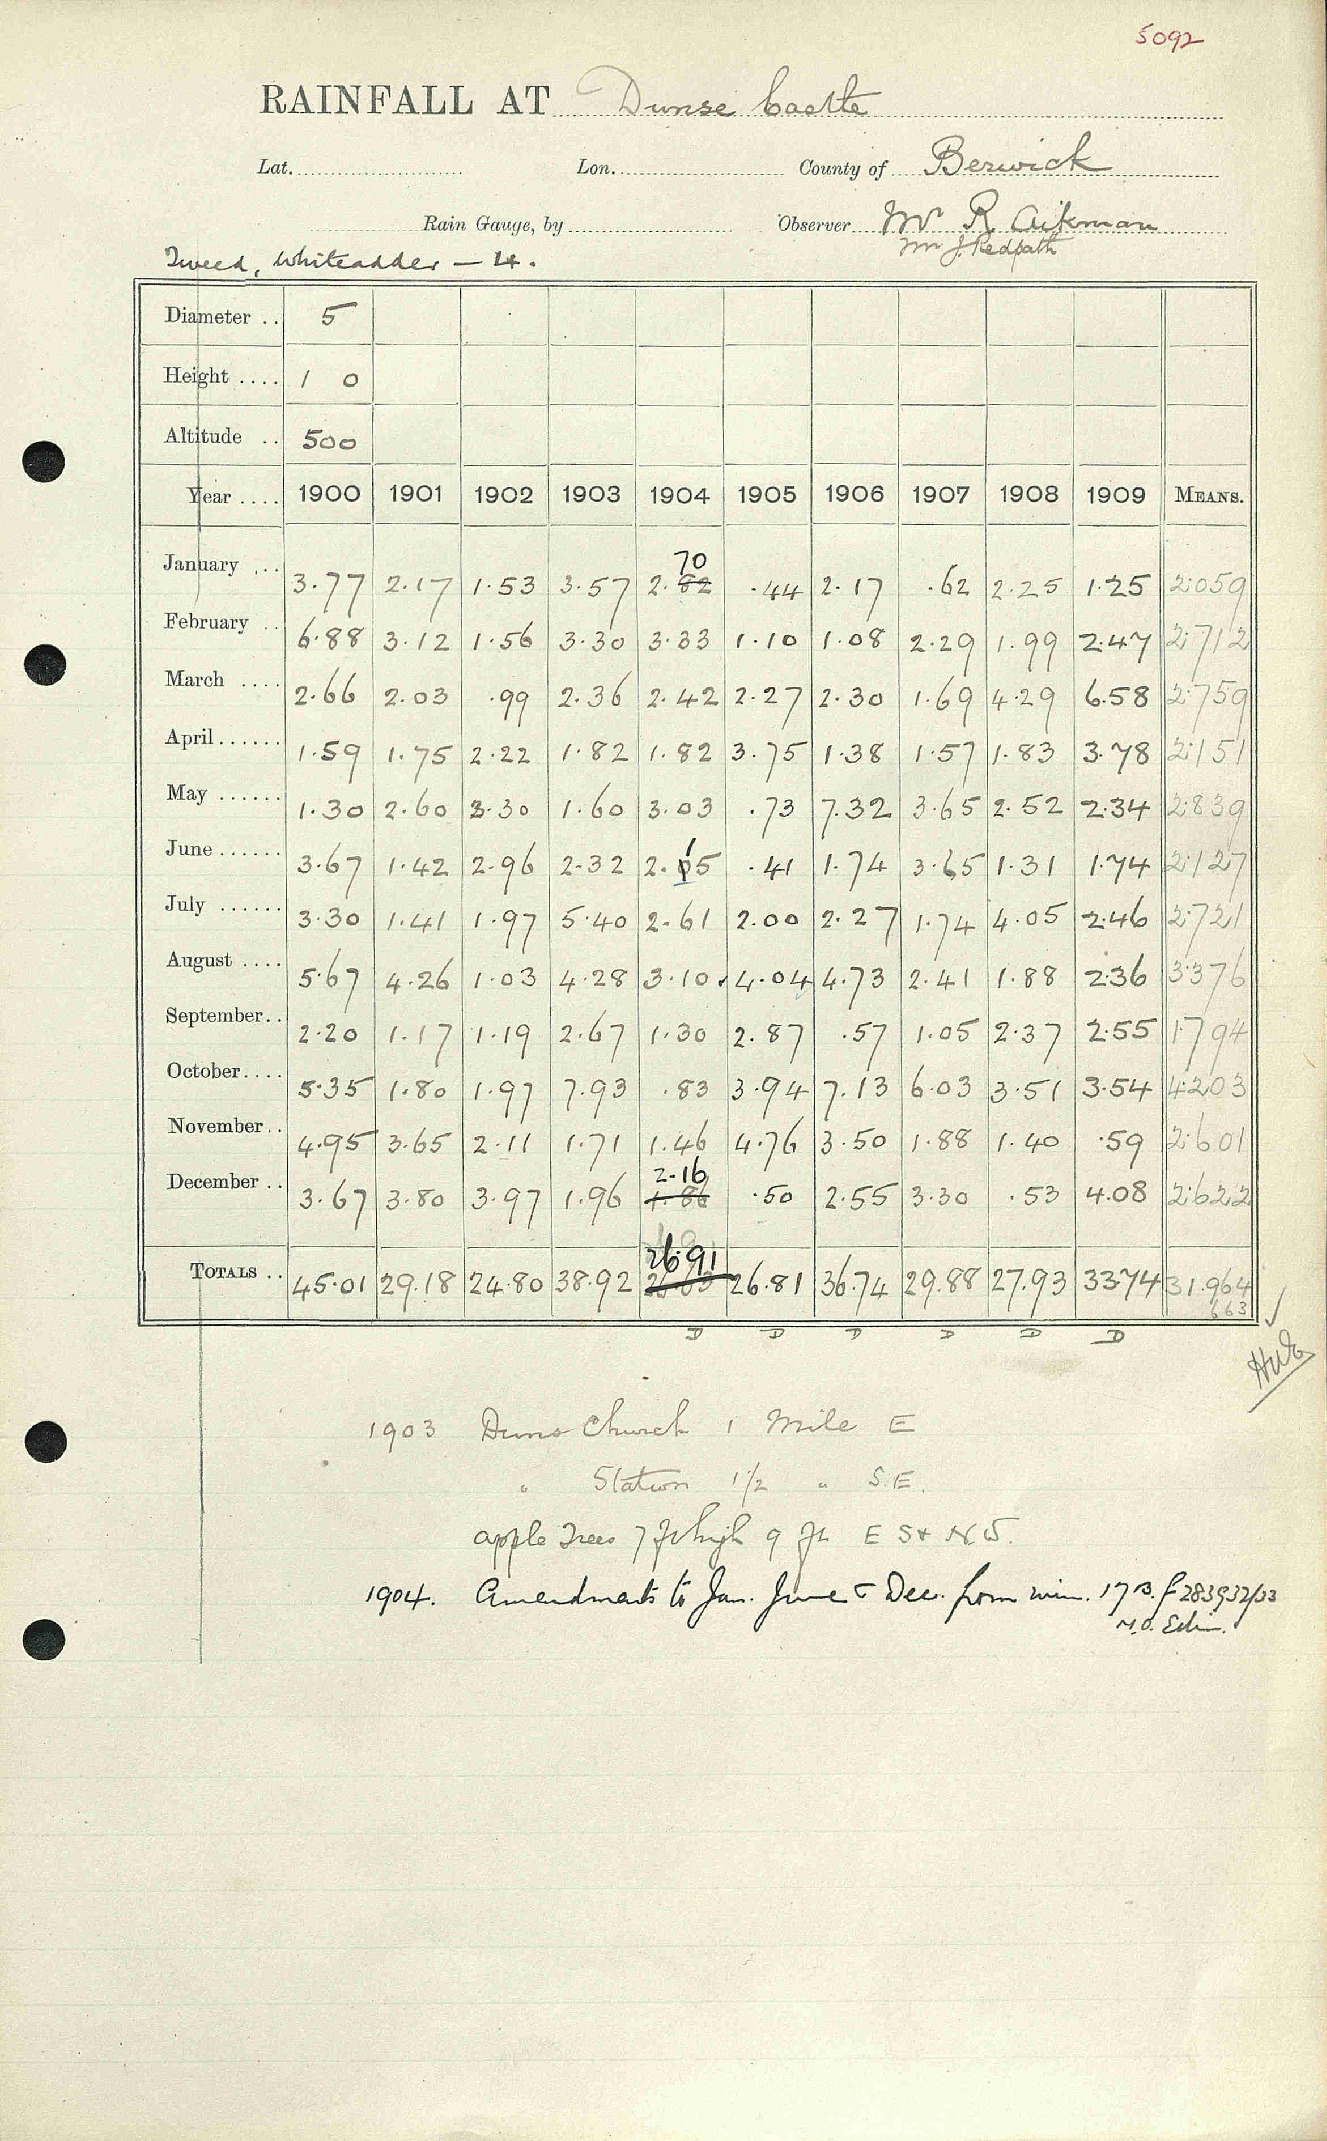 5092
RAINFALL AT Dunse Castle
Lat. Lon. County of Berwick
Rain Gauge, by Observer Mr R Aikman
Mr J. Redpath
Tweed, Whiteadder — 4.
Diameter .. 5
Height .... 1 0
Altitude .. 500
Year .... 1900 1901 1902 1903 1904 1905 1906 1907 1908 1909 MEANS.
70
January ... 3.77 2.17 1.53 3.57 2.82 .44 2.17 .62 2.25 1.25 2.059
February .. 6.88 3.12 1.56 3.30 3.33 1.10 1.08 2.29 1.99 2.47 2.712
March .... 2.66 2.03 .99 2.36 2.42 2.27 2.30 1.69 4.29 6.58 2.759
April ...... 1.59 1.75 2.22 1.82 1.82 3.75 1.38 1.57 1.83 3.78 2.151
May ...... 1.30 2.60 3.30 1.60 3.03 .73 7.32 3.65 2.52 2.34 2.839
June ...... 3.67 1.42 2.96 2.32 2.15 .41 1.74 3.65 1.31 1.74 2.127
July ...... 3.30 1.41 1.97 5.40 2.61 2.00 2.27 1.74 4.05 2.46 2.721
August .... 5.67 4.26 1.03 4.28 3.10 4.04 4.73 2.41 1.88 2.36 3.376
September .. 2.20 1.17 1.19 2.67 1.30 2.87 .57 1.05 2.37 2.55 1.794
October .... 5.35 1.80 1.97 7.93 .83 3.94 7.13 6.03 3.51 3.54 4.203
November .. 4.95 3.65 2.11 1.71 1.46 4.76 3.50 1.88 1.40 .59 2.601
2.16
December .. 3.67 3.80 3.97 1.96 1.86 .50 2.55 3.30 .53 4.08 2.622
26.91
TOTALS .. 45.01 29.18 24.80 38.92 26.81 36.74 29.88 27.93 33.74 31.964
663
D D D D D D
1903 Duns Church 1 Mile E
" Station 1 1/2 " S.E.
apple Trees 7 ft high 9 ft E S & N.W.
1904. Amendments to Jan. June & Dec. from min. 17 B. f 283932/33
M.O. Edin.